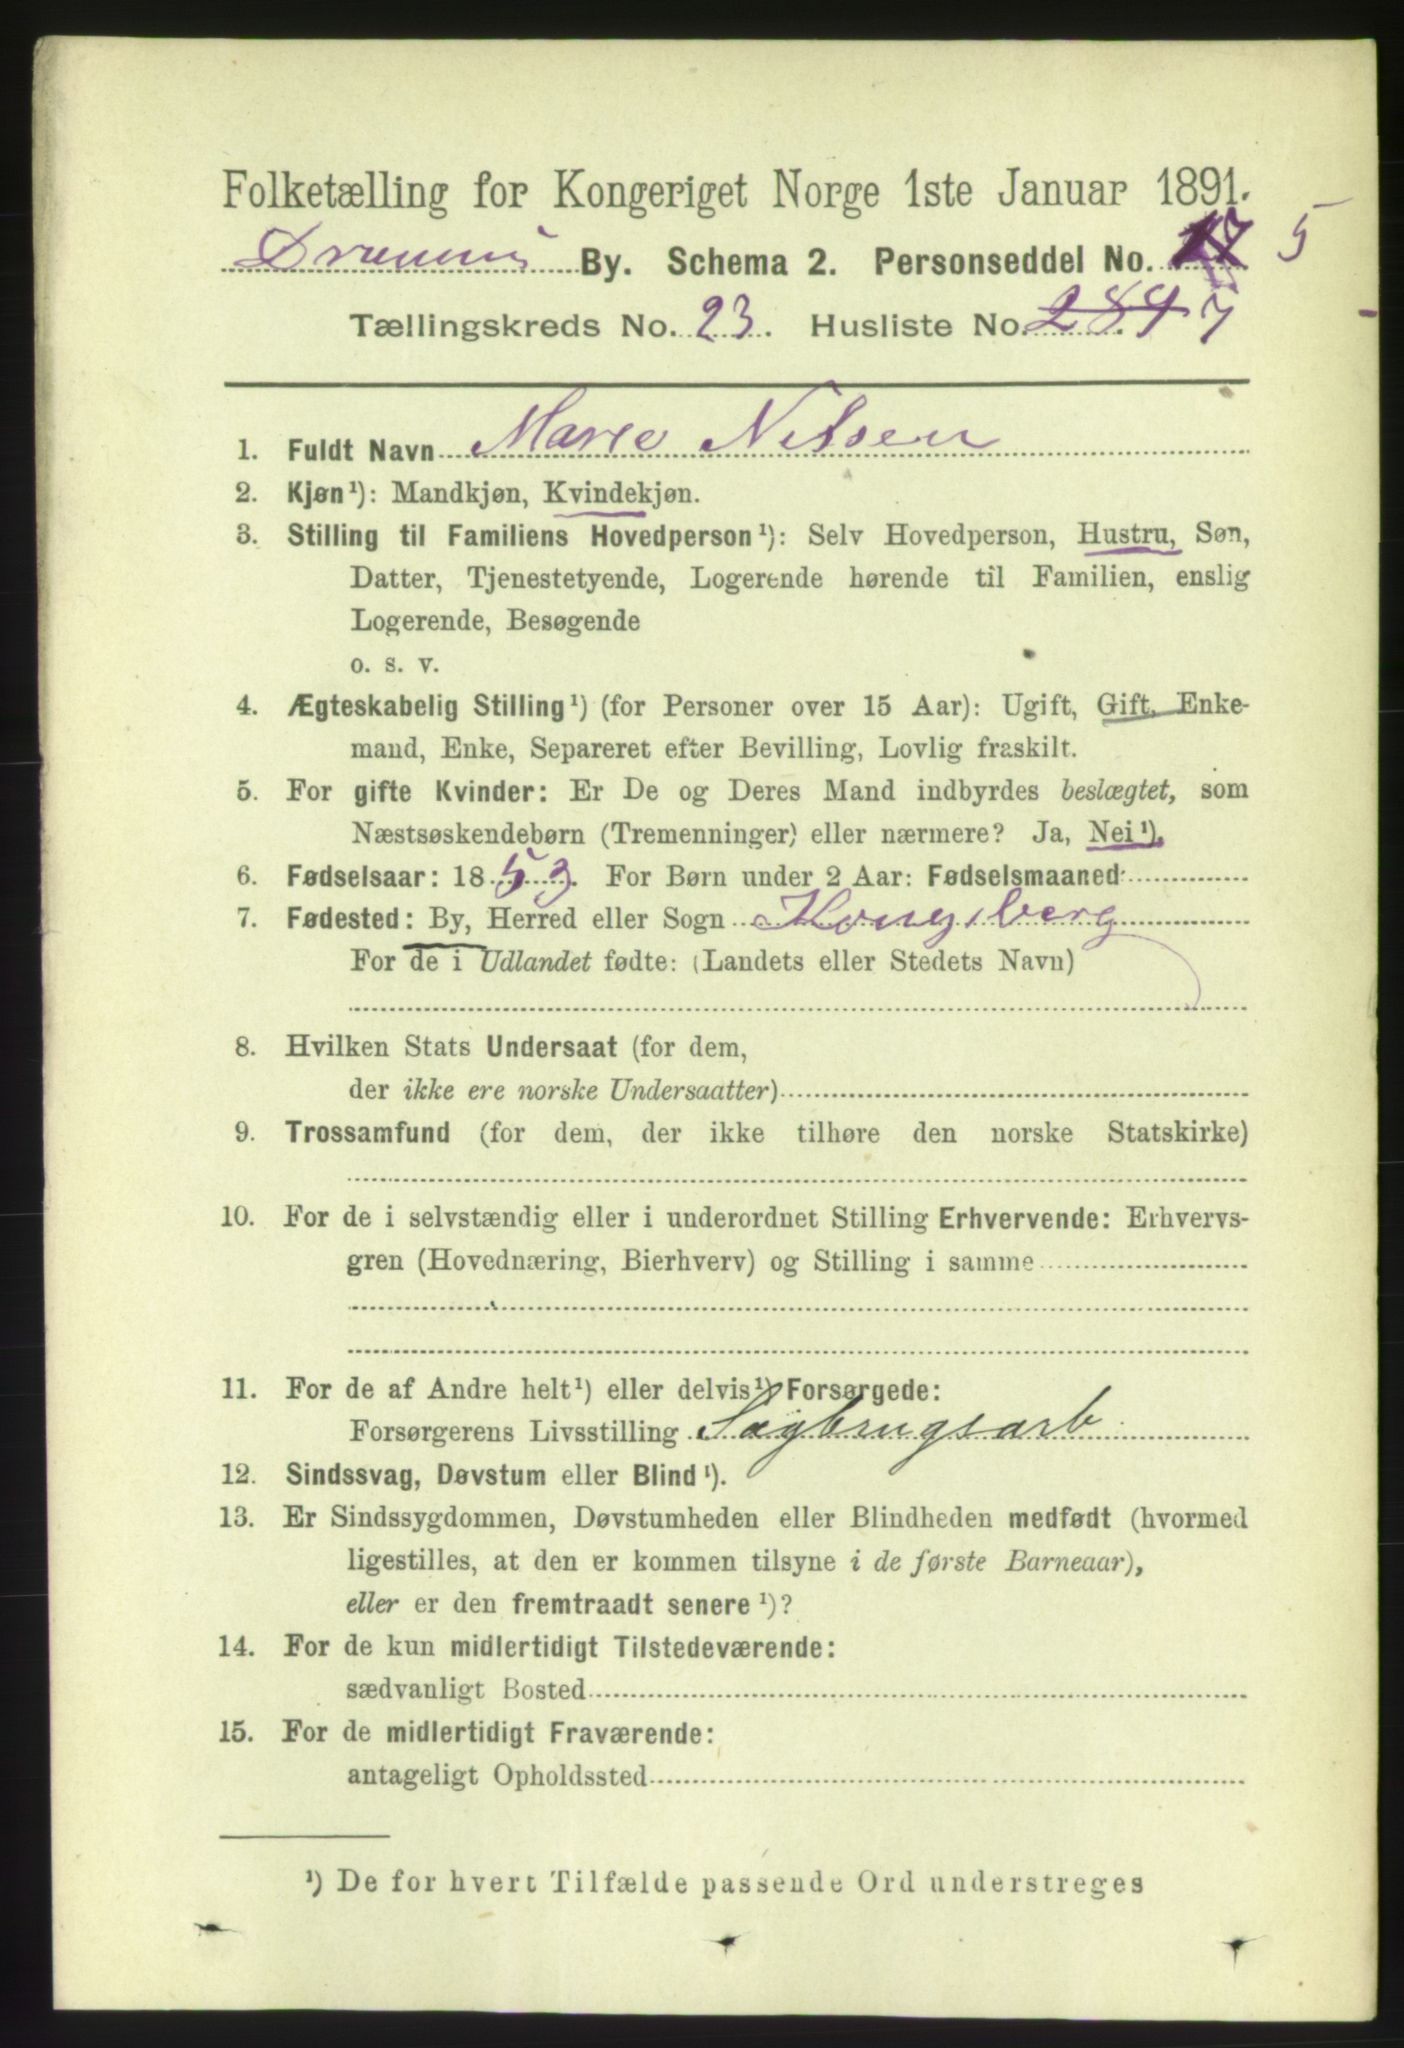 Folketælling for Kongeriget Norge 1ste Januar 1891.
Drammens By. Schema 2. Personseddel No. 5
Tællingskreds No. 23. Husliste No. 284 7
1. Fuldt Navn Marie Nilsen
2. Kjøn¹): Mandkjøn, Kvindekjøn.
3. Stilling til Familiens Hovedperson¹): Selv Hovedperson, Hustru, Søn,
Datter, Tjenestetyende, Logerende hørende til Familien, enslig
Logerende, Besøgende
o. s. v.
4. Ægteskabelig Stilling¹) (for Personer over 15 Aar): Ugift, Gift, Enke-
mand, Enke, Separeret efter Bevilling, Lovlig fraskilt.
5. For gifte Kvinder: Er De og Deres Mand indbyrdes beslægtet, som
Næstsøskendebørn (Tremenninger) eller nærmere? Ja, Nei¹).
6. Fødselsaar: 1853. For Børn under 2 Aar: Fødselsmaaned
7. Fødested: By, Herred eller Sogn Kongsberg
For de i Udlandet fødte: (Landets eller Stedets Navn)
8. Hvilken Stats Undersaat (for dem,
der ikke ere norske Undersaatter)
9. Trossamfund (for dem, der ikke tilhøre den norske Statskirke)
10. For de i selvstændig eller i underordnet Stilling Erhvervende: Erhvervs-
gren (Hovednæring, Bierhverv) og Stilling i samme
11. For de af Andre helt¹) eller delvis¹) Forsørgede:
Forsørgerens Livsstilling Sagbrugsarb.
12. Sindssvag, Døvstum eller Blind¹).
13. Er Sindssygdommen, Døvstumheden eller Blindheden medfødt (hvormed
ligestilles, at den er kommen tilsyne i de første Barneaar),
eller er den fremtraadt senere¹)?
14. For de kun midlertidigt Tilstedeværende:
sædvanligt Bosted
15. For de midlertidigt Fraværende:
antageligt Opholdssted
¹) De for hvert Tilfælde passende Ord understreges